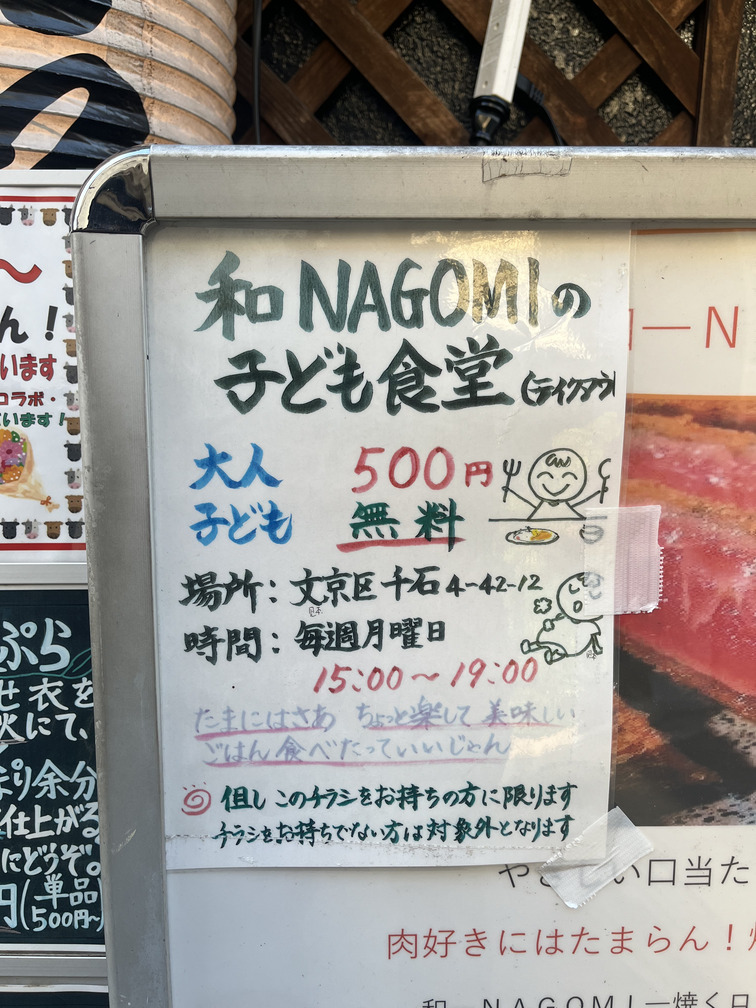 和 NAGOMIの
子ども食堂(テイクアウ
大人 500円
子ども 無料
場所：文京区千石4-42-12
時間：毎週月曜日
15:00～19:00
たまにはさあ ちょっと楽して 美味しい
ごはん食べたっていいじゃん
但し このチラシをお持ちの方に限ります
チラシをお持ちでない方は対象外となります
～
ん！
います
コラボ・
います！
ぷら
せ衣を
火にて、
余分
仕上がる
にどうぞ。
円(単品
500円～)
―N
い口当た
肉好きにはたまらん！
和―NAGOMI―焼く